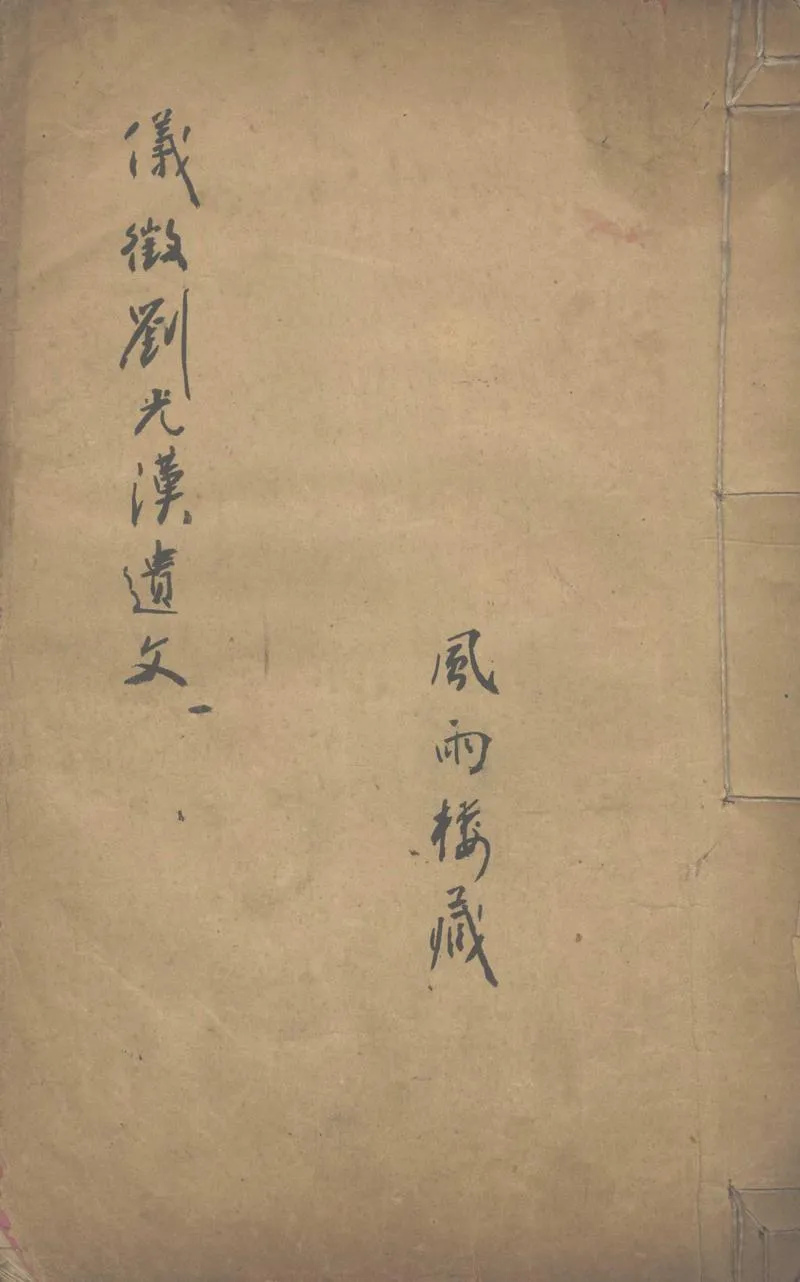 儀徵劉光漢遺文一
風雨樓藏